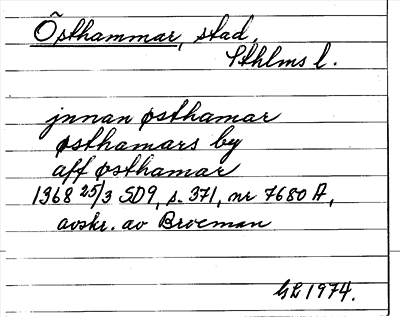 Östhammar, stad,
Sthlms l.
jnnan østhamar
østhamars by
aff østhamar
1368 25/3 SD9, s. 371, nr 7680 A,
avskr. av Broeman
GL 1974.